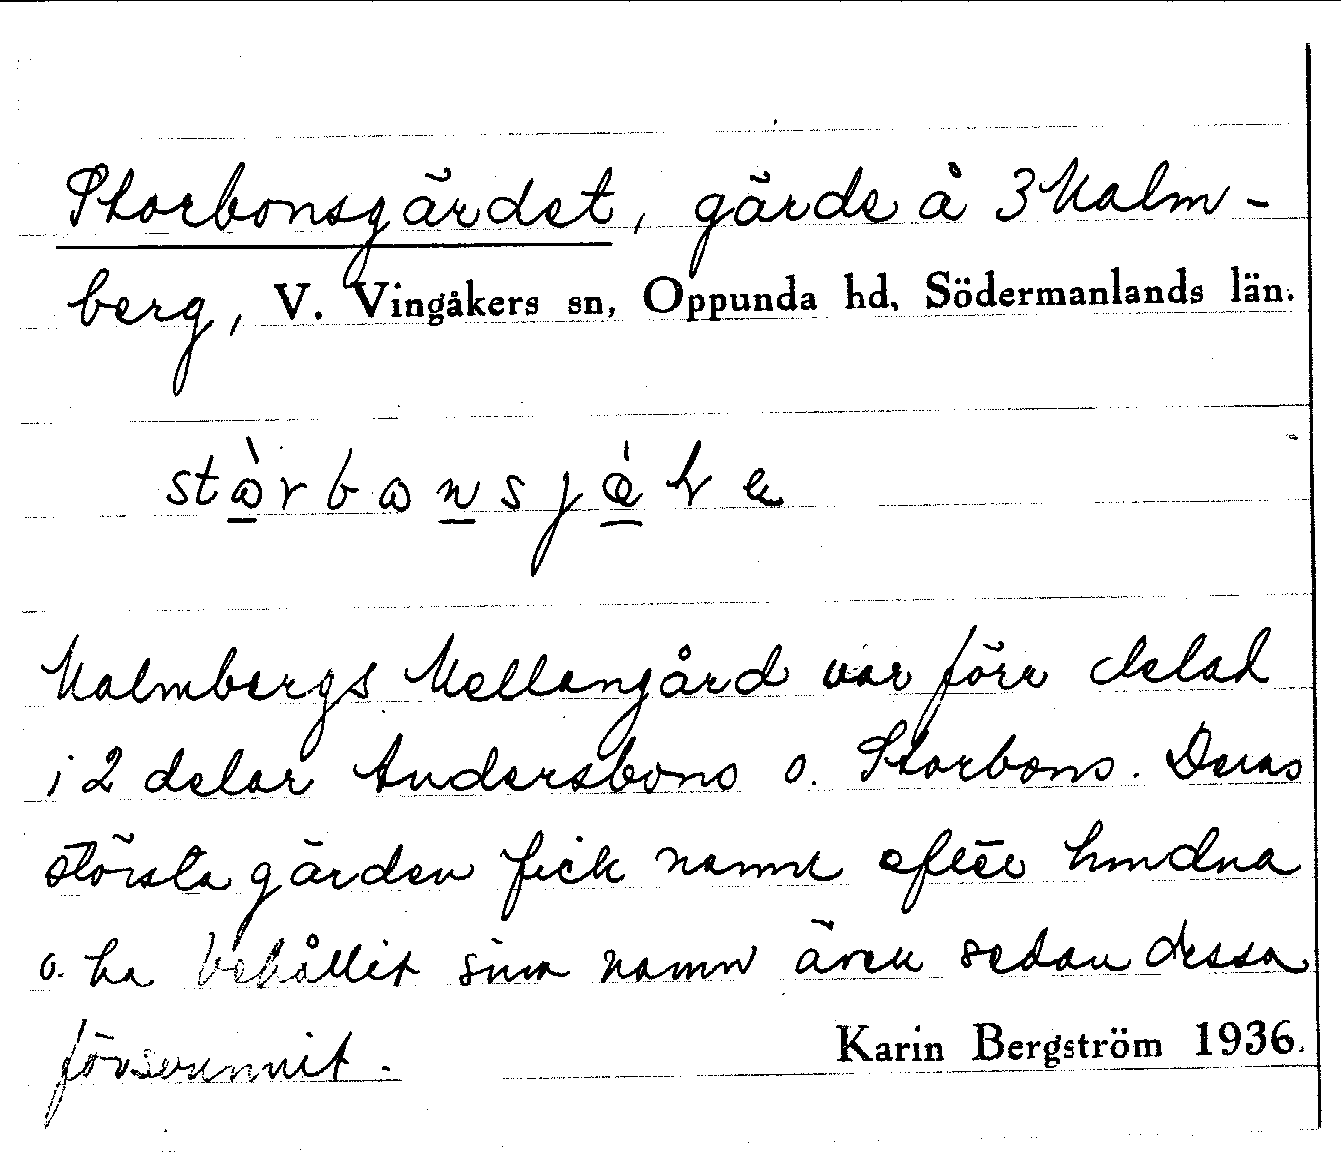 Storbonsgärdet, gärde å 3 Malm-
berg, V. Vingåkers sn, Oppunda hd, Södermanlands län.
Malmbergs Mellangård var förr delad
i 2 delar Andersbons o. Storbons. Deras
största gärden fick namn efter
o. ha behållit sina namn även sedan dessa
försvunnit.
Karin Bergström 1936.